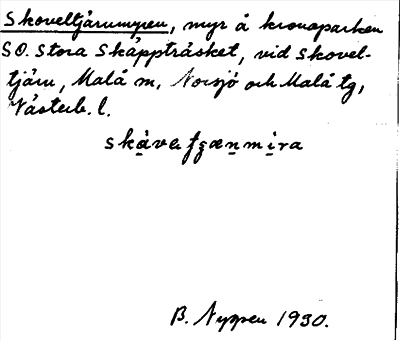 Skoveltjärnmyren, myr å kronoparken
SO. Stora Skäppträsket, vid Skovel-
tjärn, Malå sn, Norsjö och Malå tg,
Västerb. l.
B. Nygren 1930.